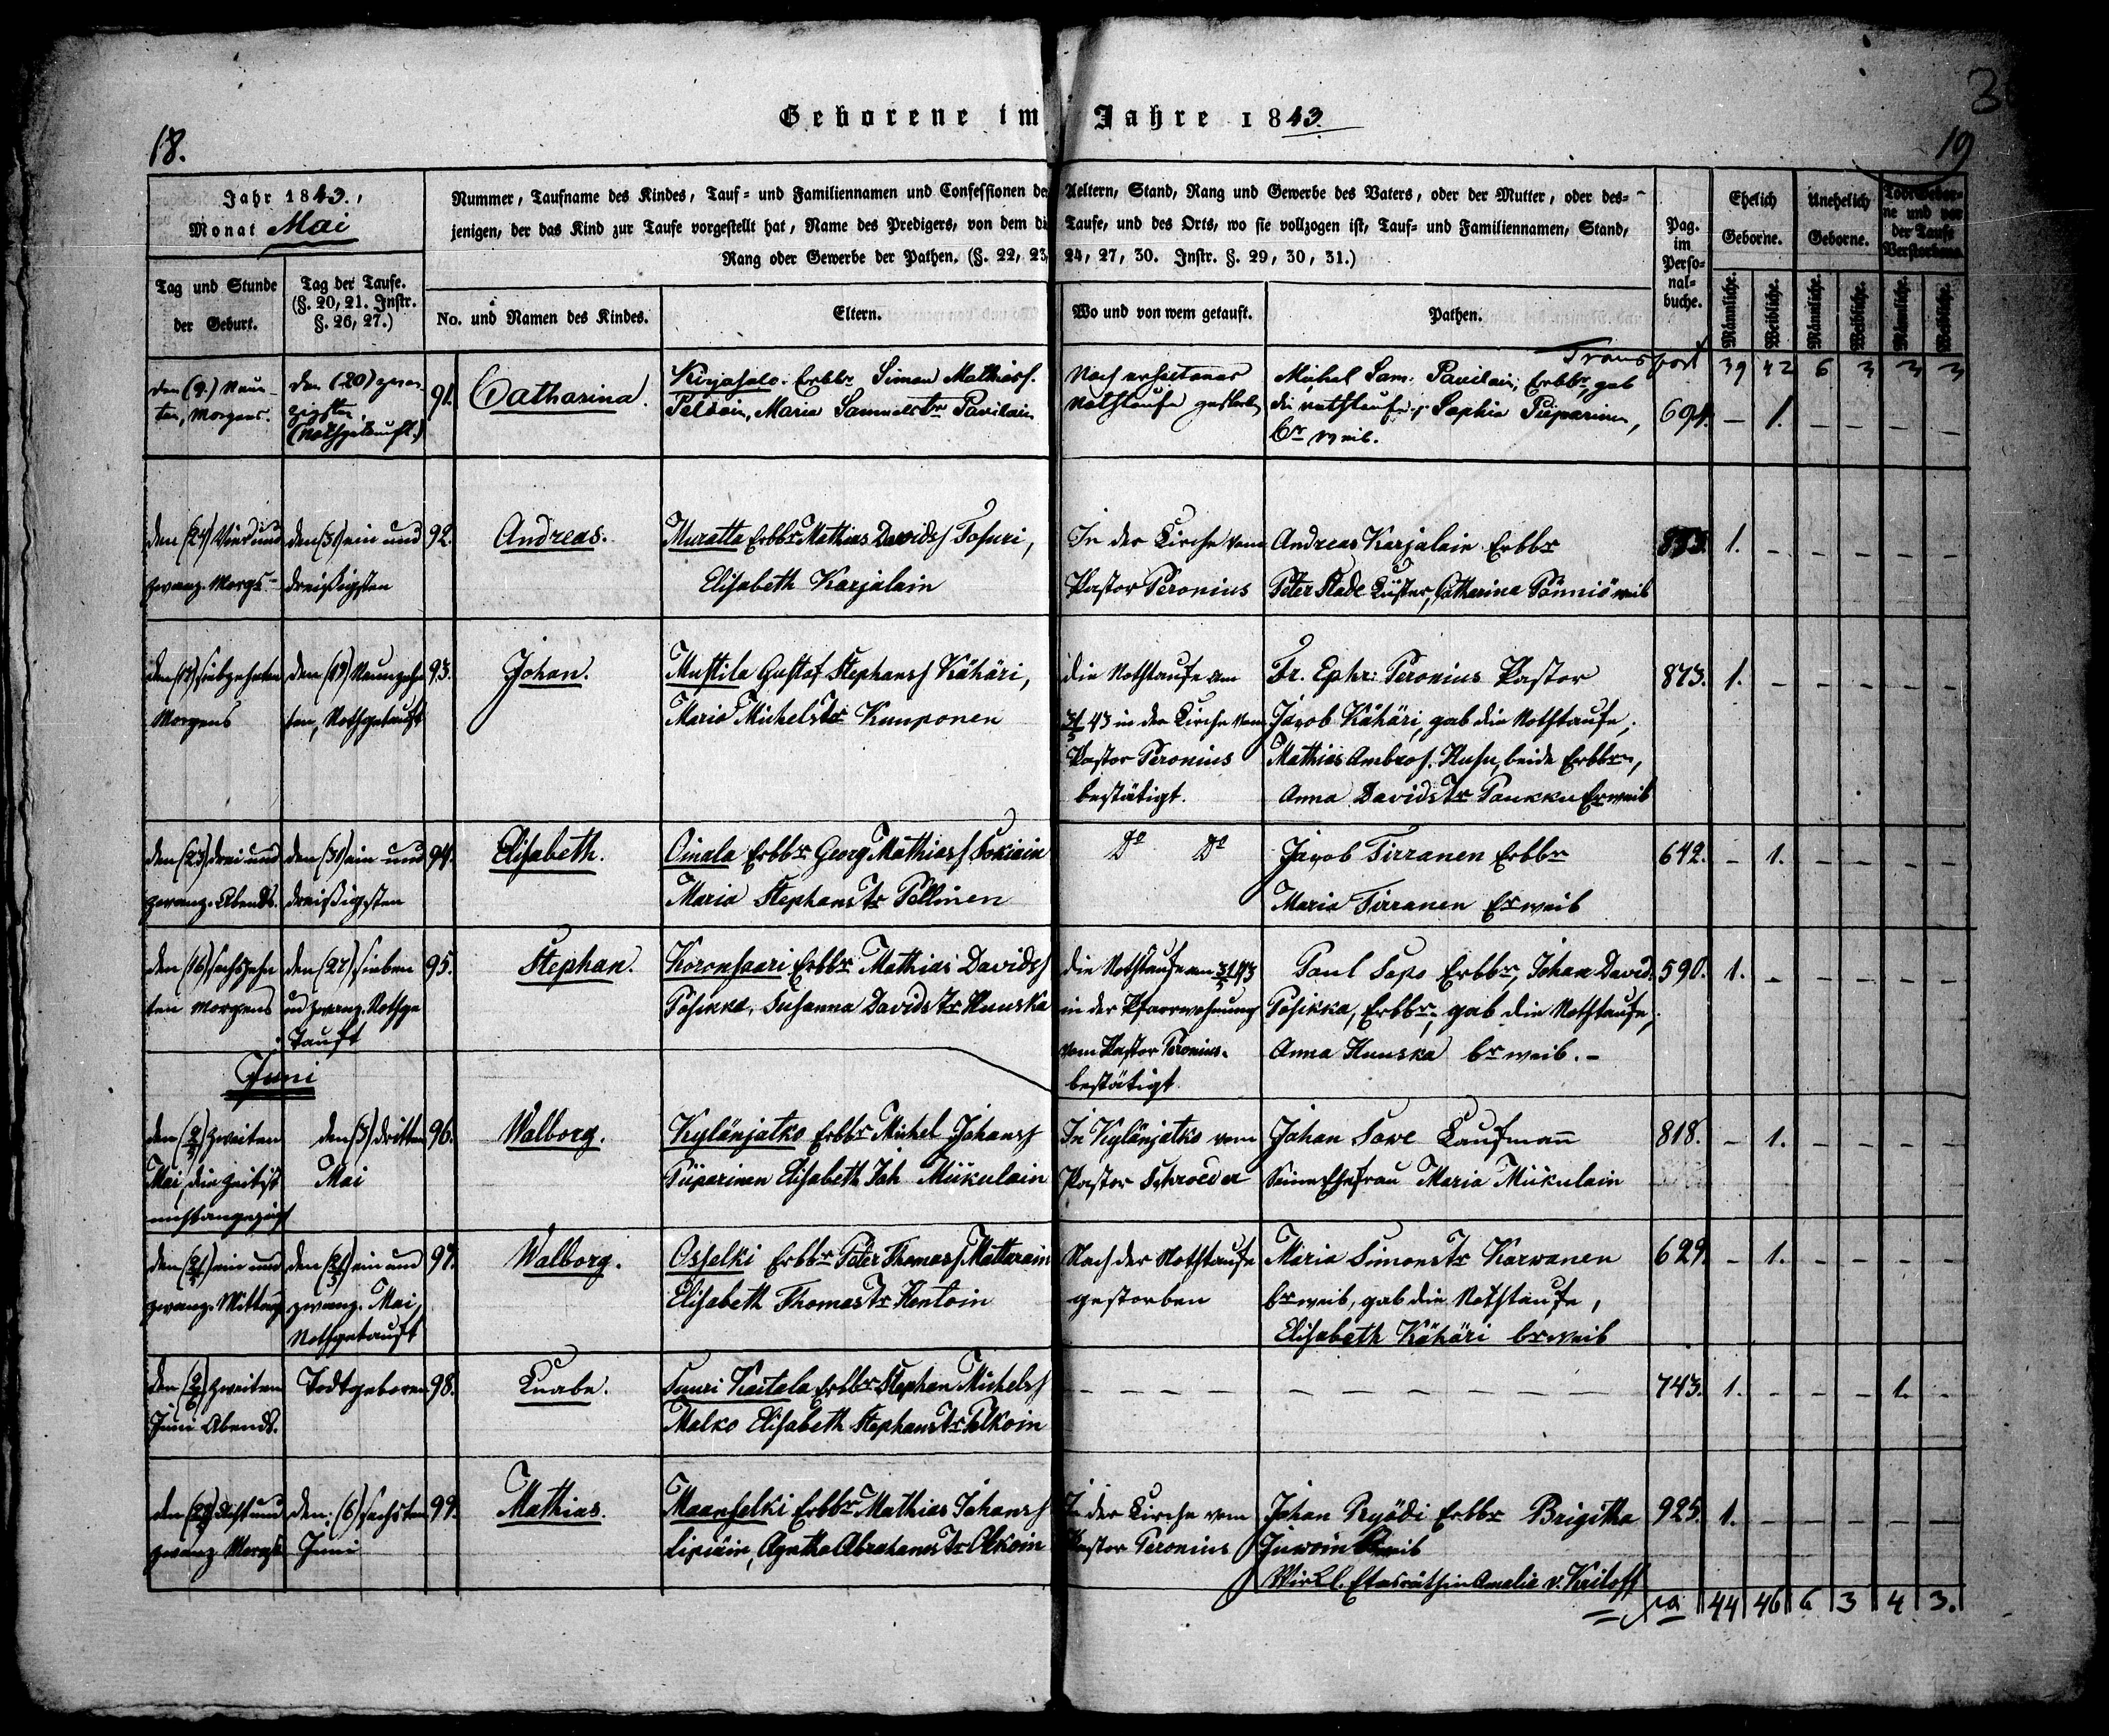 Geborene im Jahre 1843.
18.
19
Jahr 1843.,
Monat Mai
Nummer, Taufname des Kindes, Tauf- und Familiennamen und Confessionen der Aeltern, Stand, Rang und Gewerbe des Vaters, oder der Mutter, oder des-
jenigen, der das Kind zur Taufe vorgestellt hat, Name des Predigers, von dem die Taufe, und des Orts, wo sie vollzogen ist, Tauf- und Familiennamen, Stand,
Rang oder Gewerbe der Pathen. (§. 22, 23, 24, 27, 30. Instr. §. 29, 30, 31.)
Pag.
im
Perso-
nal-
buche.
Ehelich
Geborne.
Unehelich
Geborne.
Todtgebor-
ne und vor
der Taufe
Verstorbene.
Tag und Stunde
der Geburt.
Tag der Taufe.
(§. 20, 21. Instr.
§. 26, 27.)
No. und Namen des Kindes.
Eltern.
Wo und von wem getauft.
Pathen.
Männliche. Weibliche. Männliche. Weibliche. Männliche. Weibliche.
Transport 39 42 6 3 3 3
den (9.) Neun-
ten, Morgens.
den (20) zwan-
zigsten,
(Nothgetauft.)
91. Catharina.
Kirjasalo. Erbbr Simon Mathiass.
Peldoin, Maria Samuelstr Pavilain
Nach erhaltener
Nothtaufe gestorben
Michel Sam. Pavilain, Erbbr, gab
die Nothtaufe, Sophia Piiparinen,
br weib.
694. – 1. – – – –
den (24) Vier und
zwanz. Morgs-
den (31) ein und
dreißigsten
92. Andreas.
Muratta Erbbr Mathias Davids Tohuri,
Elisabeth Karjalain
In der Kirche vom
Pastor Peronius
Andreas Karjalain Erbbr
Peter Stade Küster, Catharina Pönniö weib
1. – – – – –
den (17) siebzehnten
Morgens
den (19) Neunzehn
ten, Nothgetauft
93. Johan.
Mustila Gustof Stephans Kähäri,
Maria Michelstr Kumponen
die Nothtaufe am
31/5 43 in der Kirche vom
Pastor Peronius
bestätigt.
Fr. Ephr: Peronius Pastor
Jacob Kähäri, gab die Nothtaufe,
Mathias Ambros. Huhu, beide Erbbr,
Anna Davidstr Paukku Erweib
873. 1. – – – – –
den (23) drei und
zwanz. Abends.
den (31) ein und
dreißigsten
94. Elisabeth.
Oinala Erbbr Georg Mathias Sokiain
Maria Stephanstr Pellinen
do do
Jacob Tirranen Erbbr
Maria Tirranen Erweib
642. – 1. – – – –
den (16) sechszehn
ten Morgens
den (27) sieben
und zwanz. Nothge
tauft
95. Stephan.
Koronsaari Erbbr Mathias Davids
Pösikka, Susanna Davidstr Huuska
die Nothtaufe am 31/5 43
in der Pfarrwohnung
vom Pastor Peronius.
bestätigt
Paul Sapo Erbbr, Johan David.
Pösikka, Erbbr, gab die Nothtaufe,
Anna Huuska br weib. –
590. 1. – – – – –
Juni
den (2/5) zweiten
Mai, die Zeit ist
nicht angezeigt
den (3) dritten
Mai
96. Walborg.
Kylänjatko Erbbr Michel Johans
Piiparinen Elisabeth Joh Miikulain
In Kylänjatko vom
Pastor Schroeder
Johan Save Kaufmann
Seine Ehefrau Maria Miikulain
818. – 1. – – – –
den (21/5) ein und
zwanz. Mittag
den (21/5) ein und
zwanz. Mai,
Nothgetauft
97. Walborg.
Osselki Erbbr Peter Thomas Mattarain
Elisabeth Thomastr Hentoin
Nach der Nothtaufe
gestorben
Maria Simonstr Karwanen
br weib, gab die Nothtaufe,
Elisabeth Kähäri br weib
629. – 1. – – – –
den (2/6) zweiten
Juni Abends.
Todtgeboren
98. Knabe.
Suuri Kaitala Erbbr Stephan Michels
Malko Elisabeth Stephanstr Pelkoin
743. 1. – – – 1. –
den (28) Acht und
zwanz Morgs
den: (6) sechsten
Juni
99. Mathias.
Maanselki Erbbr Mathias Johans
Lipiäin, Agatha Abrahamstr Alkoin
In der Kirche vom
Pastor Peronius
Johan Ryödi Erbbr Brigitta
Juwoin weib
Wirkl. Etasräthin Amalie v. Kriloff
925. 1. – – – – –
44 46 6 3 4 3.